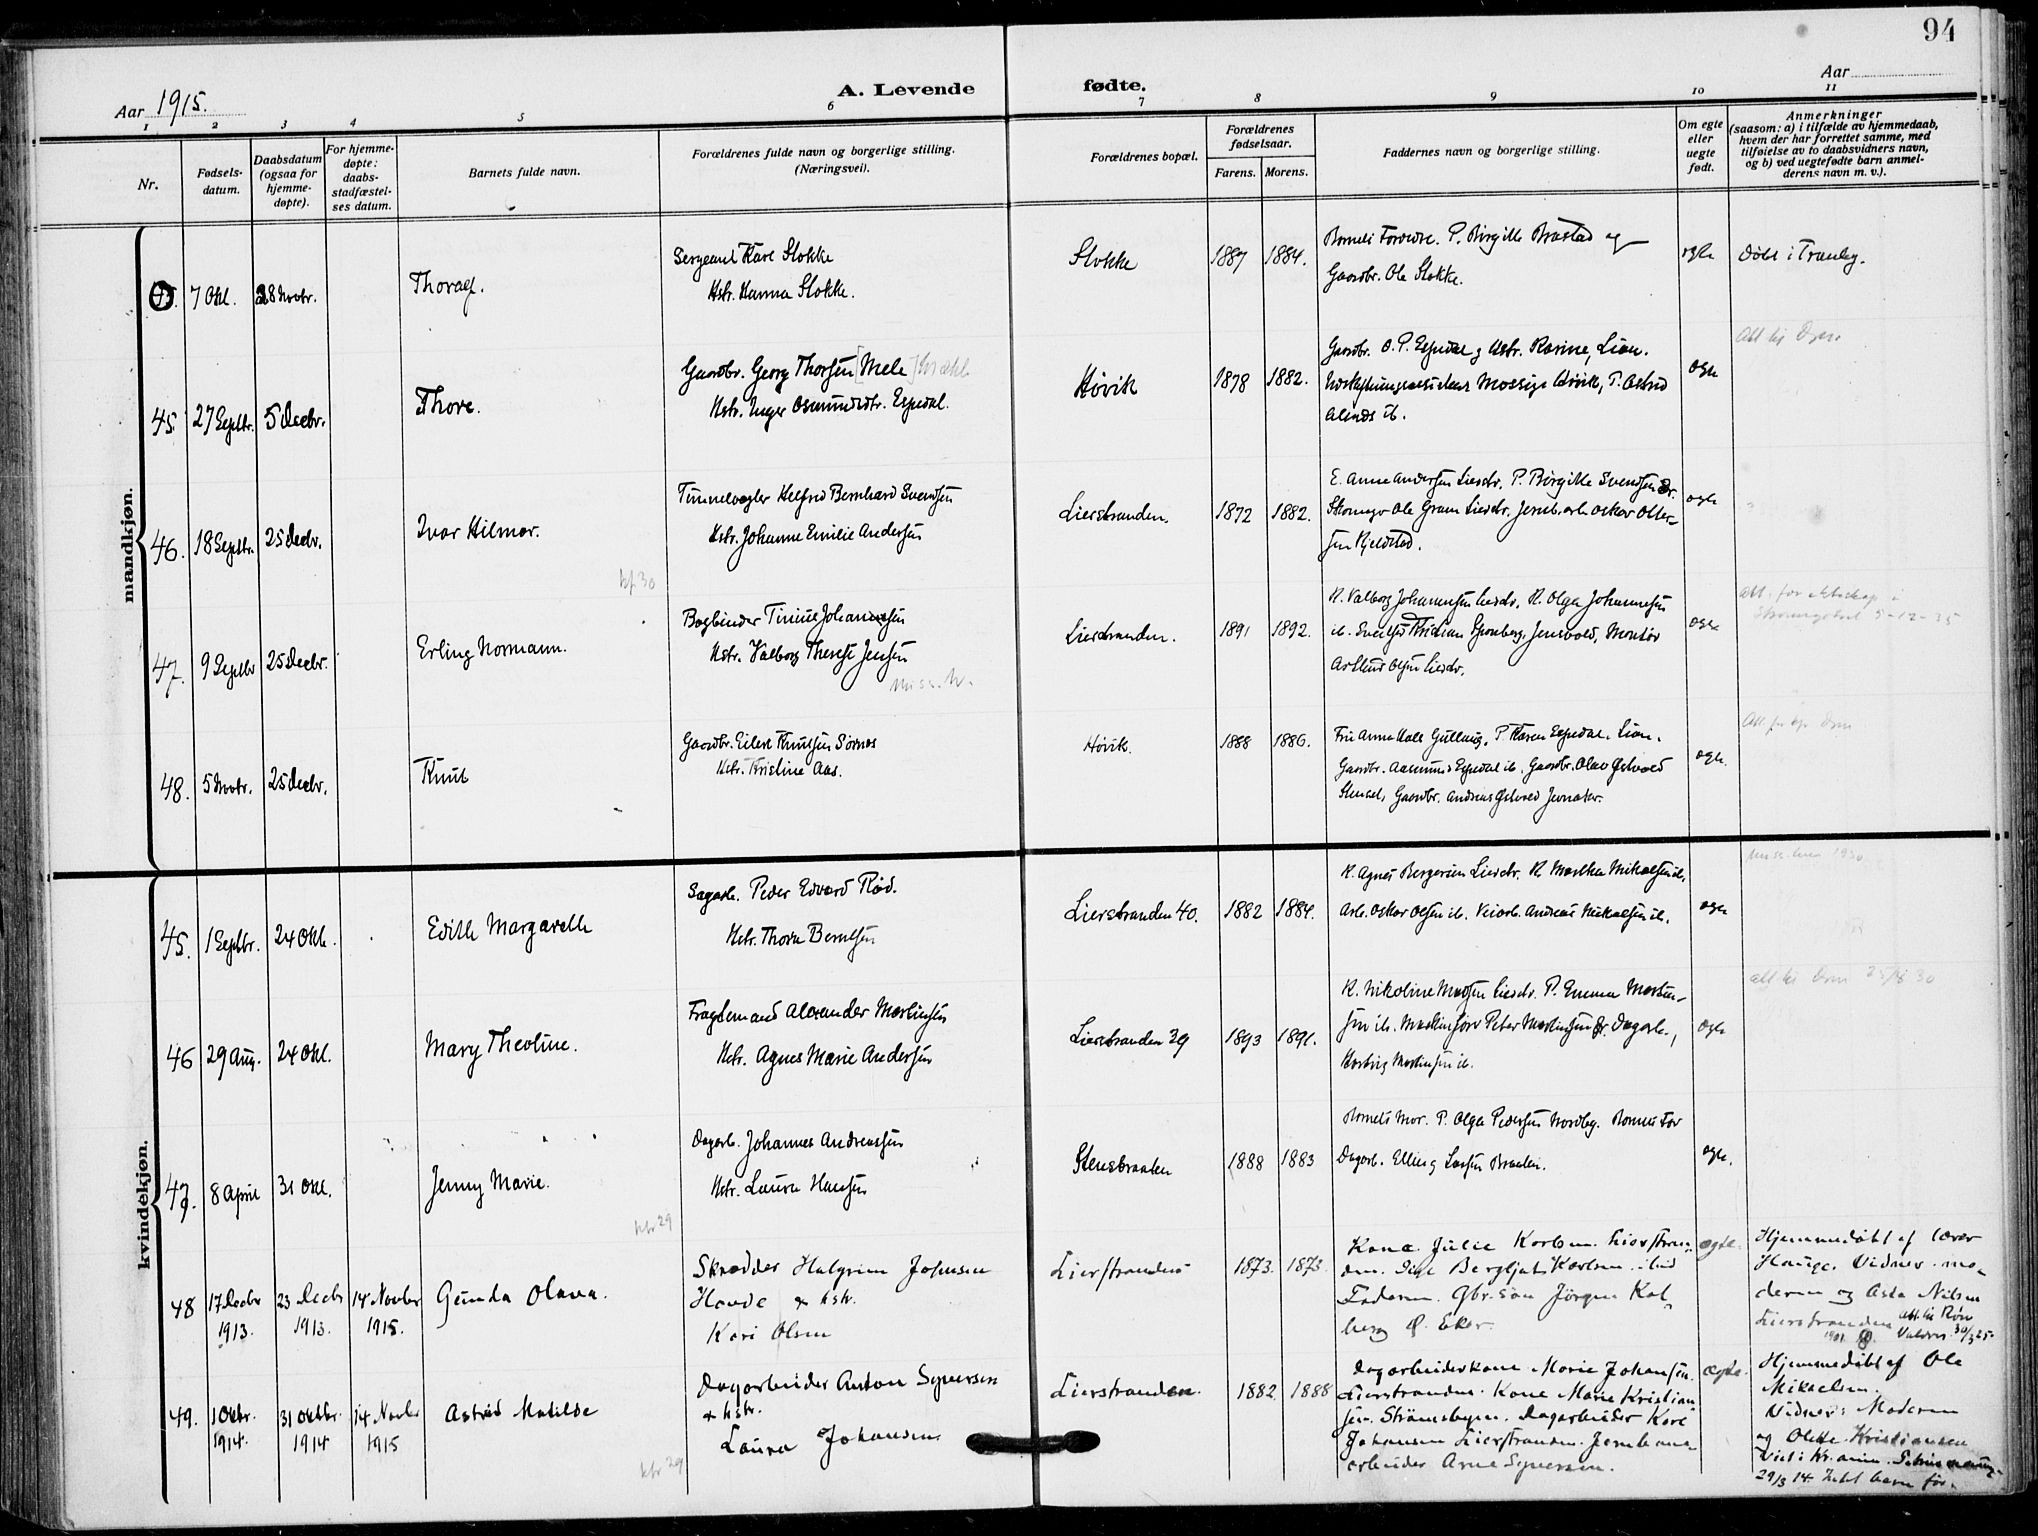 94
Aar 1915.
A. Levende fødte.
Aar
1 2 3 4 5 6 7 8 9 10 11
Nr.
Fødsels-
datum.
Daabsdatum
(ogsaa for
hjemme-
døpte).
For hjemme-
døpte:
daabs-
stadfæstel-
ses datum.
Barnets fulde navn.
Forældrenes fulde navn og borgerlige stilling.
(Næringsvei).
Forældrenes bopæl.
Forældrenes
fødselsaar.
Farens. Morens.
Faddernes navn og borgerlige stilling.
Om egte
eller
uegte
født.
Anmerkninger
(saasom: a) i tilfælde av hjemmedaab,
hvem der har forrettet samme, med
tilføielse av to daabsvidners navn,
og b) ved uegtefødte barn anmel-
derens navn m. v.).
mandkjøn.
7 Okt. 28 Novbr. Thoralf.
Sergeant Kare Stokke
Hstr. Hanna Stokke.
Stokke 1887 1884.
Barnets Forældre. P. Birgitte Brastad og
Gaardbr. Ole Stokke.
egte Døbt i Tranby.
45. 27 Septbr. 5 Decbr. Thore.
Gaardbr. Georg Thorsen [Mele]
Hstr. Inger Osmundsdtr. Espedal.
Høvik 1878 1882.
Gaardbr. O. P. Espedal og Hstr. Karine, Lian.
Mossige Høvik, P. Astrid
ib.
egte
46. 18 Septbr. 25 Decbr. Ivar Hilmar.
Helfred Bernhard Svendsen
Hstr. Johanne Emilie Andersen
Lierstranden. 1872 1882.
E. Anne Andersen Lierstr. P. Birgitte Svendsen Dr.
Ole Gram Lierstr. Jernb.arb. Oskar Olter-
sen Kjeldstad.
egte
kf 30
47. 9 Septbr 25 Decbr. Erling Normann.
Bogbinder Tinius Johannesen
Hstr. Valborg Therese Jensen
Miss. h.
Lierstranden. 1891 1892.
K. Valborg Johannesen Lierstr. K. Olga Johannesen
ib. Kristian Sponberg, Jensvold, Montør
Arthur Olsen Lierstr.
egte
5-12-35
48. 5 Novbr. 25 Decbr. Knut
Gaardbr. Eilert Knutsen Sørnes
Hstr. Kristine Aas.
Høvik. 1888 1886.
Fru Anne Gullaug, P. Karen Espedal, Lian.
Gaardbr. Aasmund Espedal ib. Gaardbr. Olav Østvold
Gaardbr. Andreas Østvold Jevnaker.
egte.
kvindekjøn.
45. 1 Septbr. 24 Okt. Edith Margareth
Sagarb. Peder Edvard Rød.
Hstr. Thora Berntsen
Lierstranden 40. 1882 1884.
K. Agnes Bergersen Lierstr. K. Marthea Mikaelsen ib.
Arb. Oskar Olsen ib. Veiarb. Andreas Mikaelsen ib.
egte
46 29 Aug. 24 Okt. Mary Theoline.
Fragtemand Alexander Martinsen
Hstr. Agnes Marie Andersen
Lierstranden 29 1893 1891.
K. Nikoline Madsen Lierstr. P. Emma Martin-
sen ib. Peter Martinsen Dr. Dagarb.
Martinsen ib.
egte
47. 8 April 31 Okt. Jenny Marie.
Dagarb. Johannes Andreassen
Hstr. Laura Hansen
Stensbraaten 1888 1883
Barnets Mor. P. Olga Pedersen Nordby. Barnets Far
Dagarb. Elling Larsen Braaten.
egte.
kfr 29
48 17 Decbr 1913. 23 Decbr 1913. 14 Novbr 1915. Gunda Olava.
Skrædder Halgrim Johnsen
Hovde & hstr.
Kari Olsen
Lierstranden 1873. 1873.
Kone Julie Karlsen. Lierstran-
den. Pige Bergljot Karlsen ibid
Faderen. Gbr. søn Jørgen Kol-
berg Ø. Eker.
egte.
Hjemmedøbt af lærer
Hauge. Vidner: mo-
deren og Asta Nilsen
Lierstranden
49. 1 Oktbr. 1914. 31 Oktbr. 1914 14 Novbr 1915 Astrid Matilde
Dagarbeider Anton Syversen
& hstr.
Laura Johansen
kfr 29
Lierstranden. 1882 1888
Dagarbeiderkone Marie Johansen.
Lierstranden. Kone Marie Kristian-
sen. Strømsbyen. Dagarbeider Karl
Johansen Lierstranden. Jernbane-
arbeider Arne Syversen.
egte.
Hjemmedøbt af Ole
Mikaelsen.
Vidner: Moderen
og Olette Kristiansen
29/3 14.